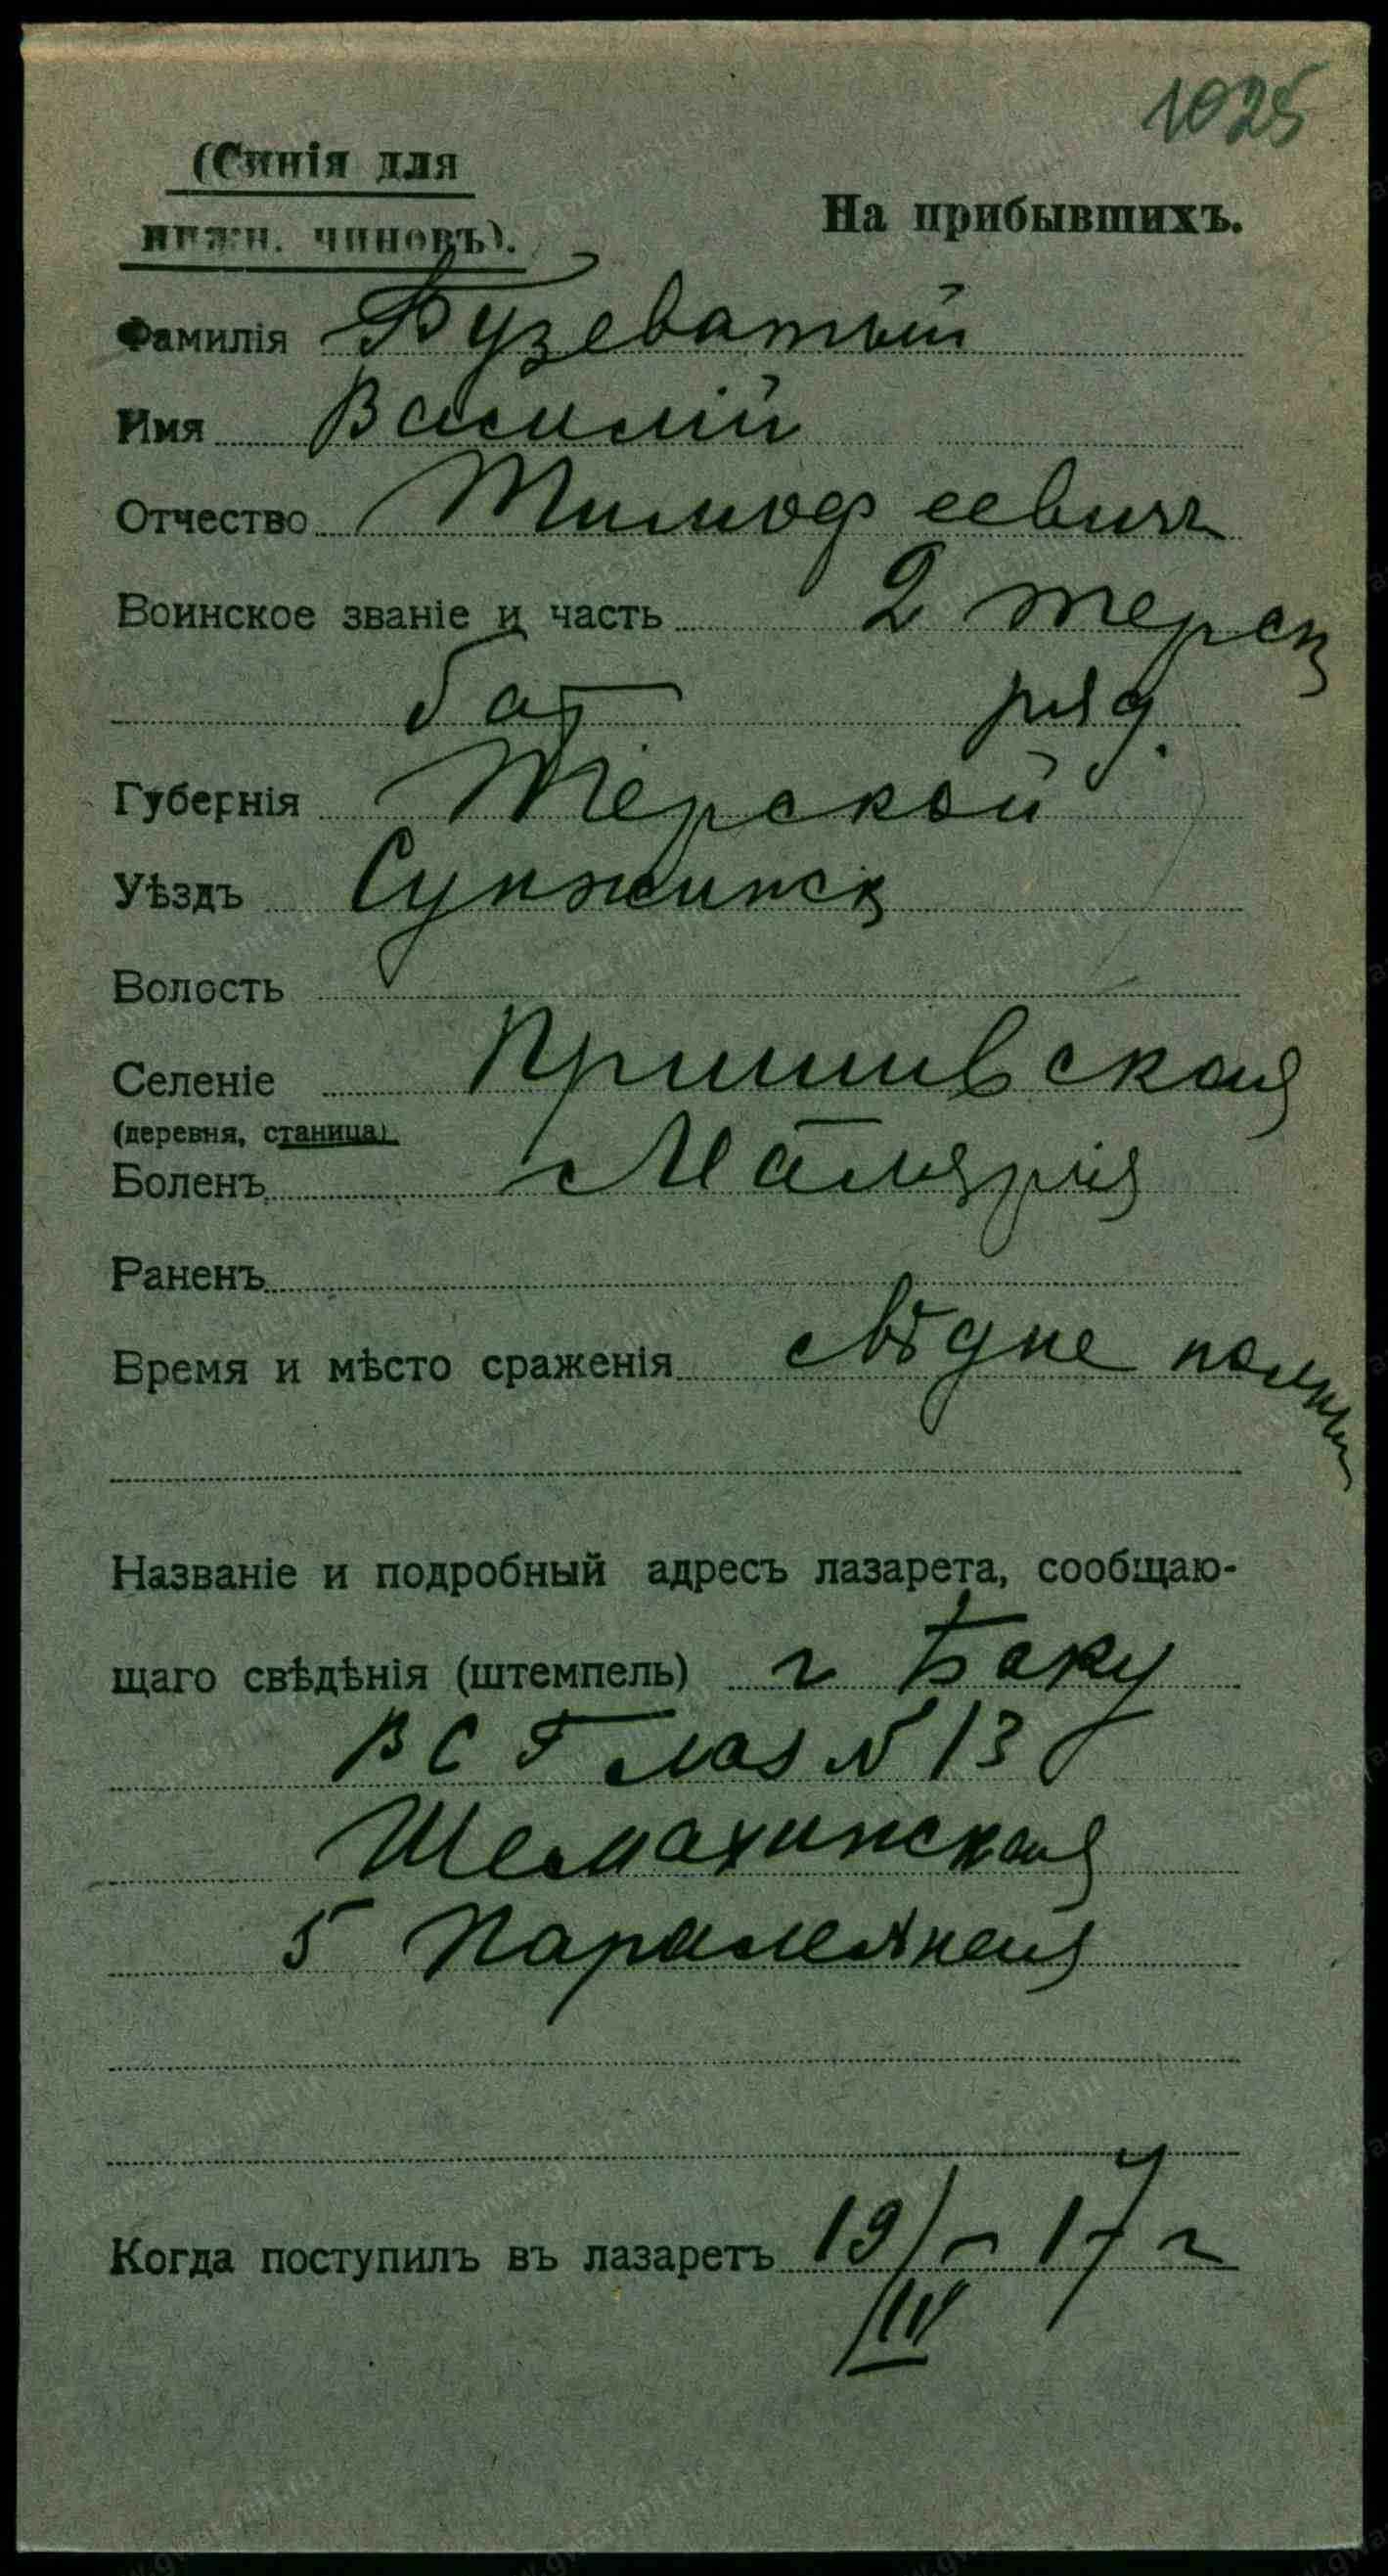 1025
(Синія для
нижн. чиновъ).
На прибывшихъ.
Фамилія Бузеватый
Имя Василій
Отчество Тимофеевичъ
Воинское званіе и часть 2 терск
бат ряд.
Губернія Терской
Уѣздъ Сунжинск
Волость
Селеніе Пришивская
(деревня, станица)
Боленъ Малярія
Раненъ
Время и мѣсто сраженія
Названіе и подробный адресъ лазарета, сообщаю-
щаго свѣдѣнія (штемпель) г Баку
ВСГ лаз № 13
Шемахинская
5 Паралельная
Когда поступилъ въ лазаретъ 19/IV - 17 г